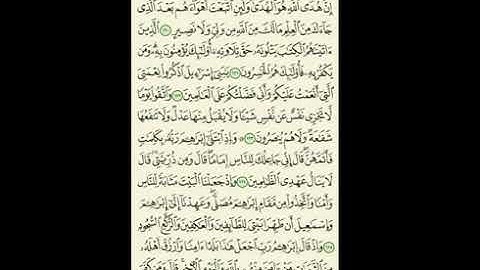 إِنَّ هُدَى اللَّهِ هُوَ الْهُدَىٰ وَلَئِنِ اتَّبَعْتَ أَهْوَاءَهُم بَعْدَ الَّذِي
جَاءَكَ مِنَ الْعِلْمِ مَا لَكَ مِنَ اللَّهِ مِن وَلِيٍّ وَلَا نَصِيرٍ ١٢٠ الَّذِينَ
آتَيْنَاهُمُ الْكِتَابَ يَتْلُونَهُ حَقَّ تِلَاوَتِهِ أُولَٰئِكَ يُؤْمِنُونَ بِهِ وَمَن
يَكْفُرْ بِهِ فَأُولَٰئِكَ هُمُ الْخَاسِرُونَ ١٢١ يَا بَنِي إِسْرَائِيلَ اذْكُرُوا نِعْمَتِيَ
الَّتِي أَنْعَمْتُ عَلَيْكُمْ وَأَنِّي فَضَّلْتُكُمْ عَلَى الْعَالَمِينَ ١٢٢ وَاتَّقُوا يَوْمًا
لَّا تَجْزِي نَفْسٌ عَن نَّفْسٍ شَيْئًا وَلَا يُقْبَلُ مِنْهَا عَدْلٌ وَلَا تَنفَعُهَا
شَفَاعَةٌ وَلَا هُمْ يُنصَرُونَ ١٢٣ وَإِذِ ابْتَلَىٰ إِبْرَاهِيمَ رَبُّهُ بِكَلِمَاتٍ
فَأَتَمَّهُنَّ قَالَ إِنِّي جَاعِلُكَ لِلنَّاسِ إِمَامًا قَالَ وَمِن ذُرِّيَّتِي قَالَ
لَا يَنَالُ عَهْدِي الظَّالِمِينَ ١٢٤ وَإِذْ جَعَلْنَا الْبَيْتَ مَثَابَةً لِّلنَّاسِ
وَأَمْنًا وَاتَّخِذُوا مِن مَّقَامِ إِبْرَاهِيمَ مُصَلًّى وَعَهِدْنَا إِلَىٰ إِبْرَاهِيمَ
وَإِسْمَاعِيلَ أَن طَهِّرَا بَيْتِيَ لِلطَّائِفِينَ وَالْعَاكِفِينَ وَالرُّكَّعِ السُّجُودِ
١٢٥ وَإِذْ قَالَ إِبْرَاهِيمُ رَبِّ اجْعَلْ هَٰذَا بَلَدًا آمِنًا وَارْزُقْ أَهْلَهُ
مِنَ الثَّمَرَاتِ مَنْ آمَنَ مِنْهُم بِاللَّهِ وَالْيَوْمِ الْآخِرِ قَالَ وَمَن كَفَرَ